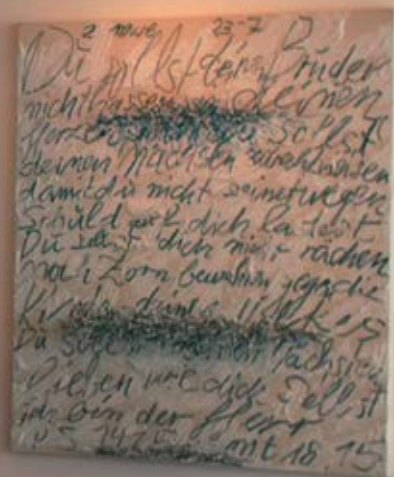 2 mwe 23-7
Du sollst deinen Bruder
nicht hassen in deinen
Herzen du sollst
deinen Nächsten zurechtweisen
damit du nicht seinetwegen
Schuld auf dich ladest
Du sollst dich nicht rächen
Zorn bewahren gegen die
Kinder deines Volkes
Du sollst deinen Nächsten
lieben wie dich selbst
ich bin der Herr
mt 18.15